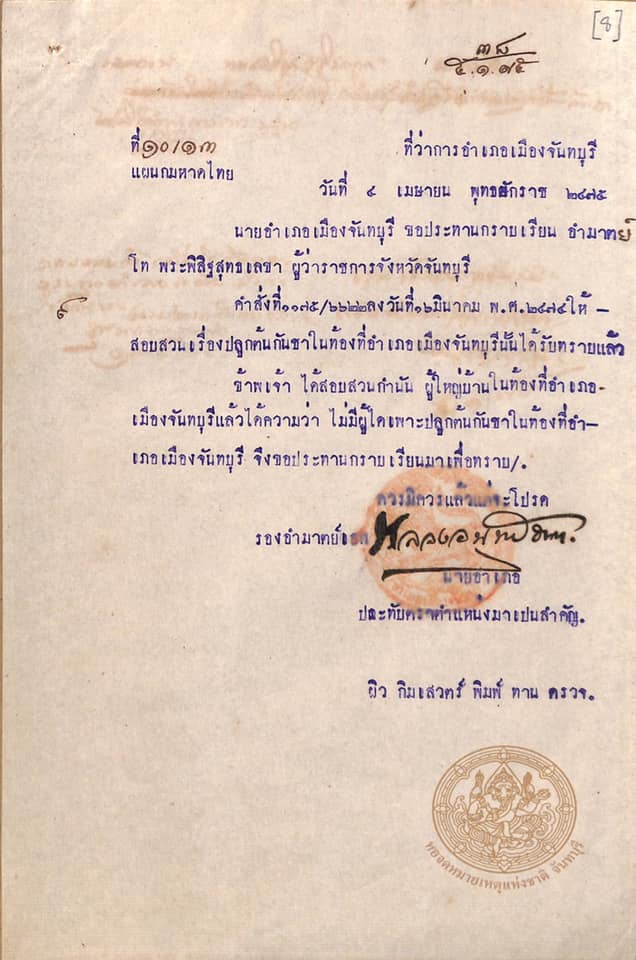 [8]
๓๘
๕.๑.๗๕
ที่๑๐/๑๓
ที่ว่าการอำเภอเมืองจันทบุรี
แผนกมหาดไทย
วันที่ ๔ เมษายน พุทธศักราช ๒๔๗๕
นายอำเภอเมืองจันทบุรี ขอประทานกราบเรียน อำมาตย์
โท พระพิสิฐสุทธเลขา ผู้ว่าราชการจังหวัดจันทบุรี
คำสั่งที่๑๑๗๕/๖๖๒๒ลงวันที่๑๖มีนาคม พ.ศ.๒๔๗๔ให้ -
สอบสวนเรื่องปลูกต้นกันชาในท้องที่อำเภอเมืองจันทบุรีนั้นได้รับทราบแล้ว
ข้าพเจ้า ได้สอบสวนกำนัน ผู้ใหญ่บ้านในท้องที่อำเภอ-
เมืองจันทบุรีแล้วได้ความว่า ไม่มีผู้ใดเพาะปลูกต้นกันชาในท้องที่อำ-
เภอเมืองจันทบุรี จึงขอประทานกราบเรียนมาเพื่อทราบ/.
ควรมิควรแล้วแต่จะโปรด
รองอำมาตย์เอก
นายอำเภอ
ประทับตราตำแหน่งมาเปนสำคัญ.
ผิว กิมเสวตร์ พิมพ์ ทาน ตรวจ.
หอจดหมายเหตุแห่งชาติ จันทบุรี